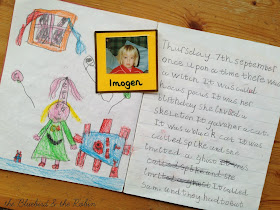 Imogen
Thursday 7th september
once upon a time there was
a witch it was called
hocus pocus it was her
birthday she invited a
skeleton it gave her a cat
it was a black cat it was
called spike and she
invited a ghost
it called
same and they had to but
the Bluebird & the Robin